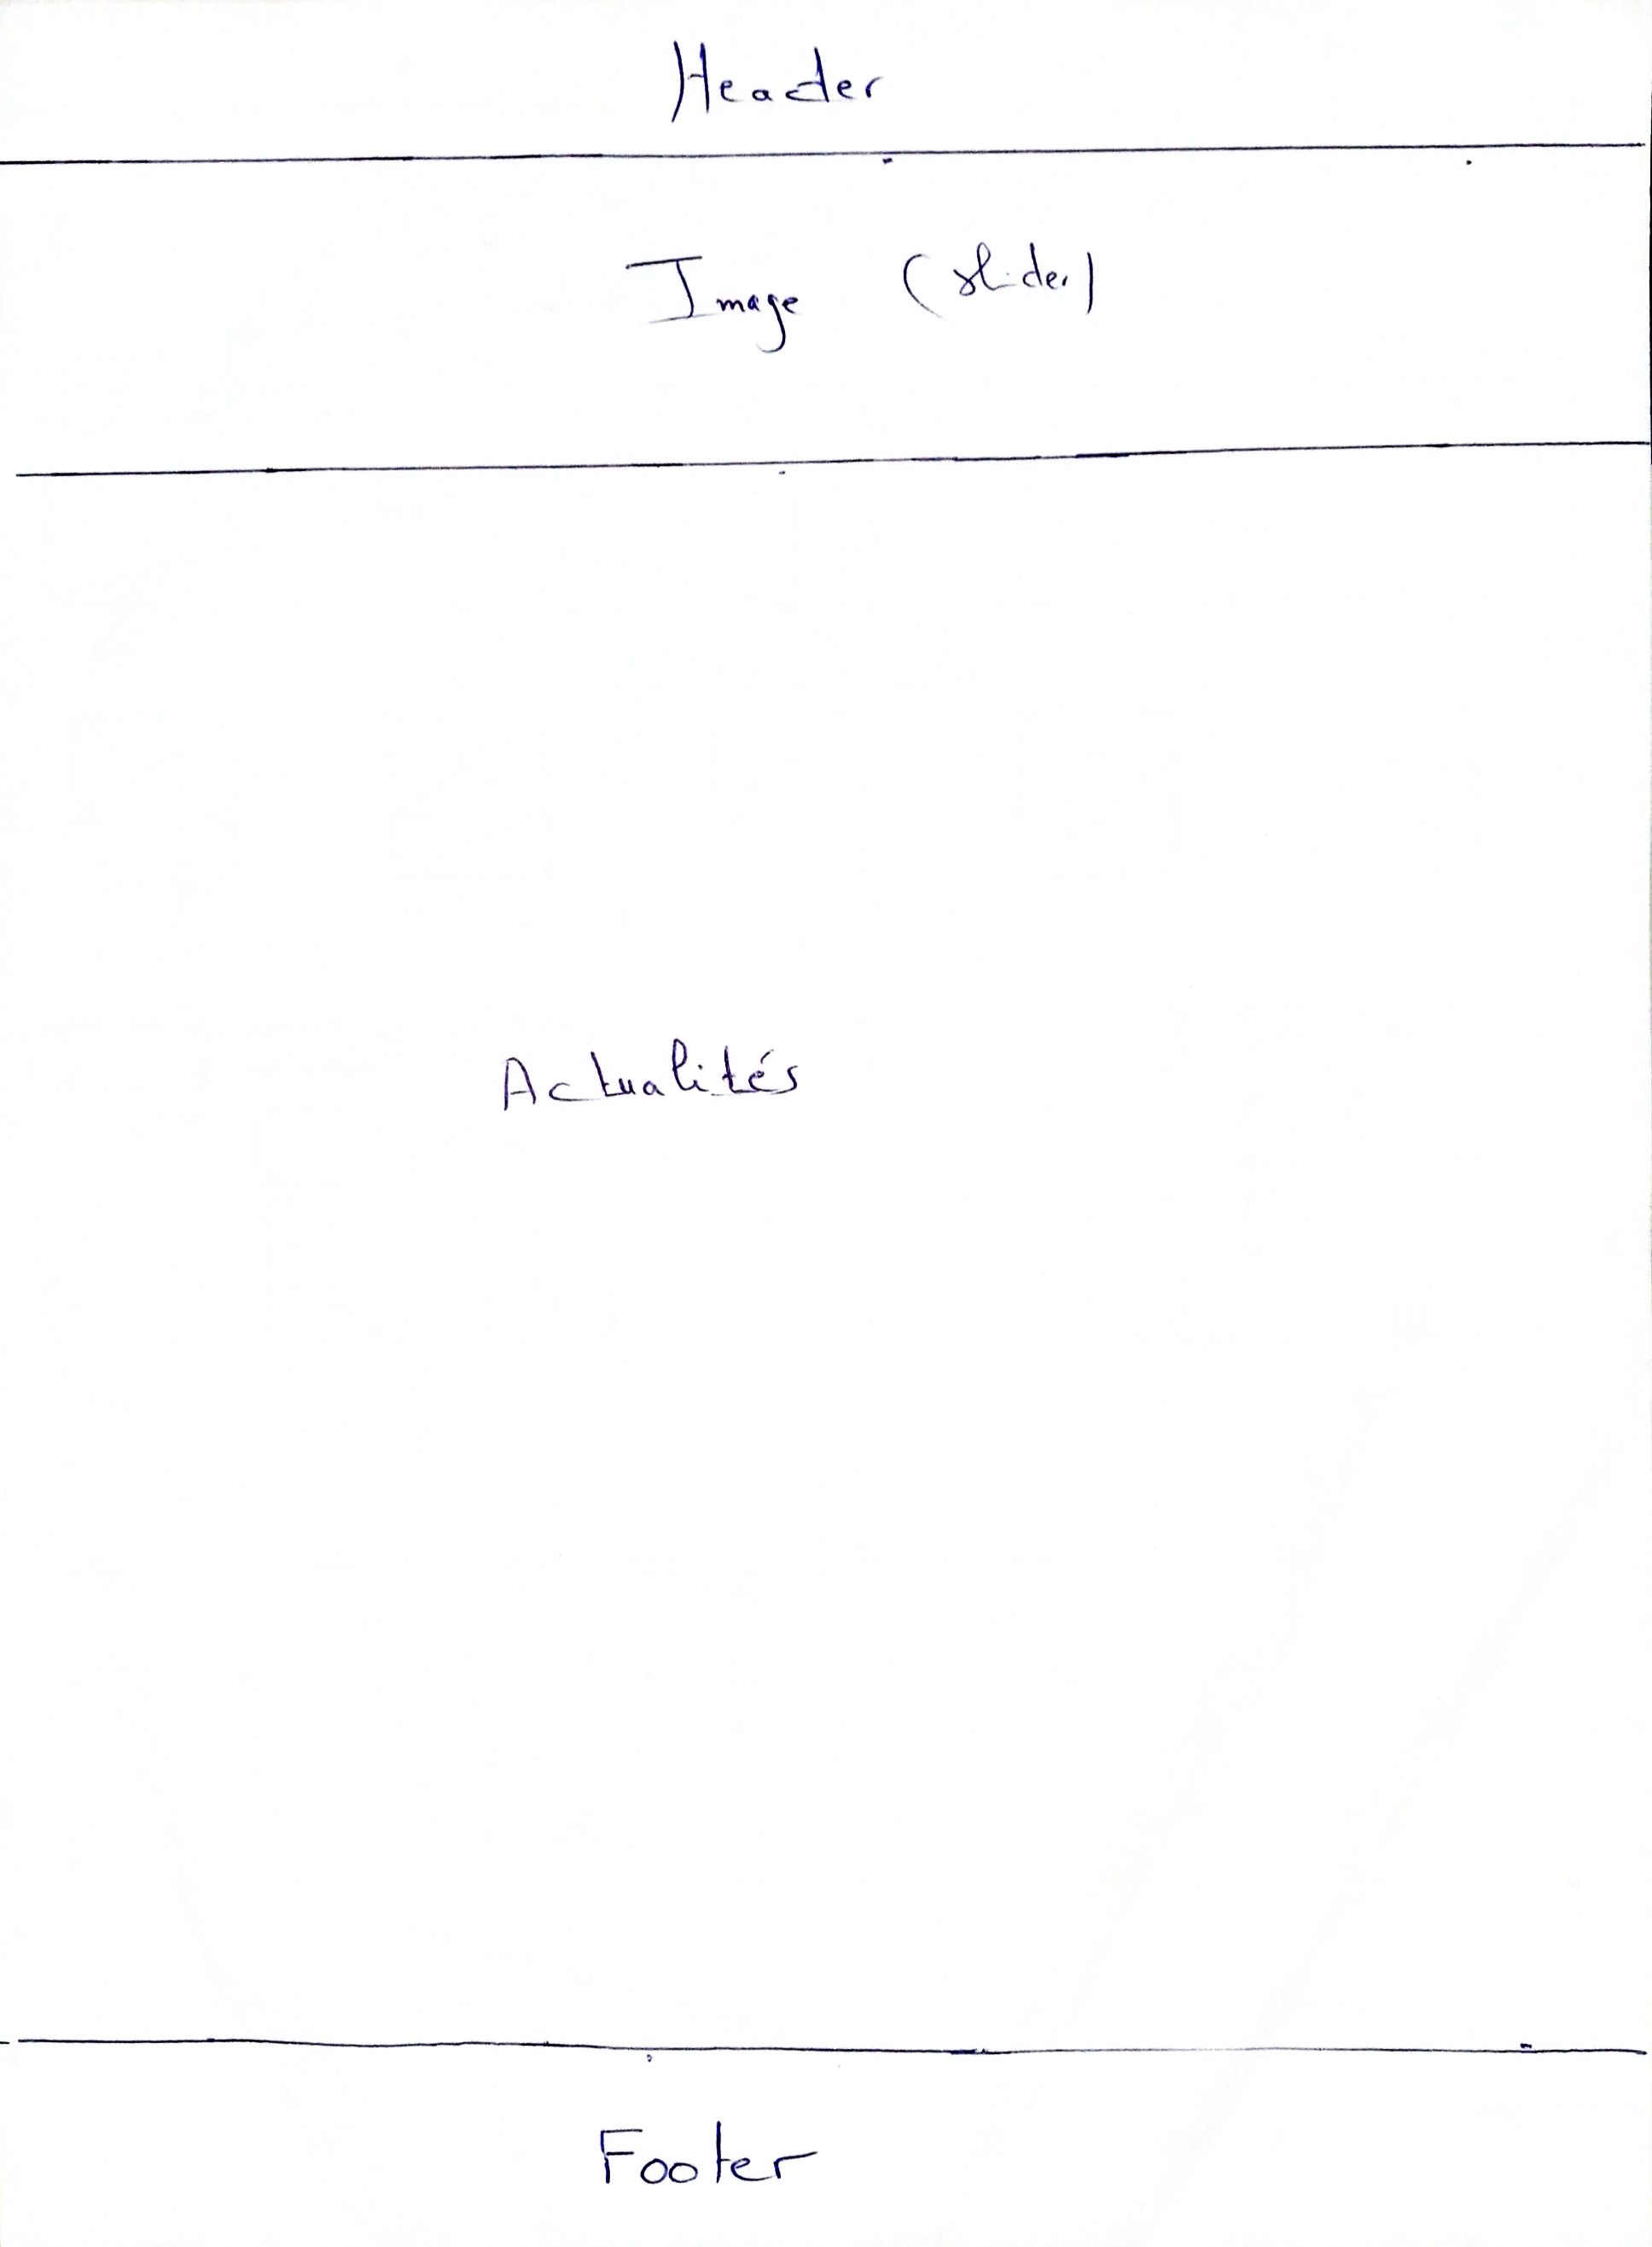 Header
Image (slider)
Actualités
Footer